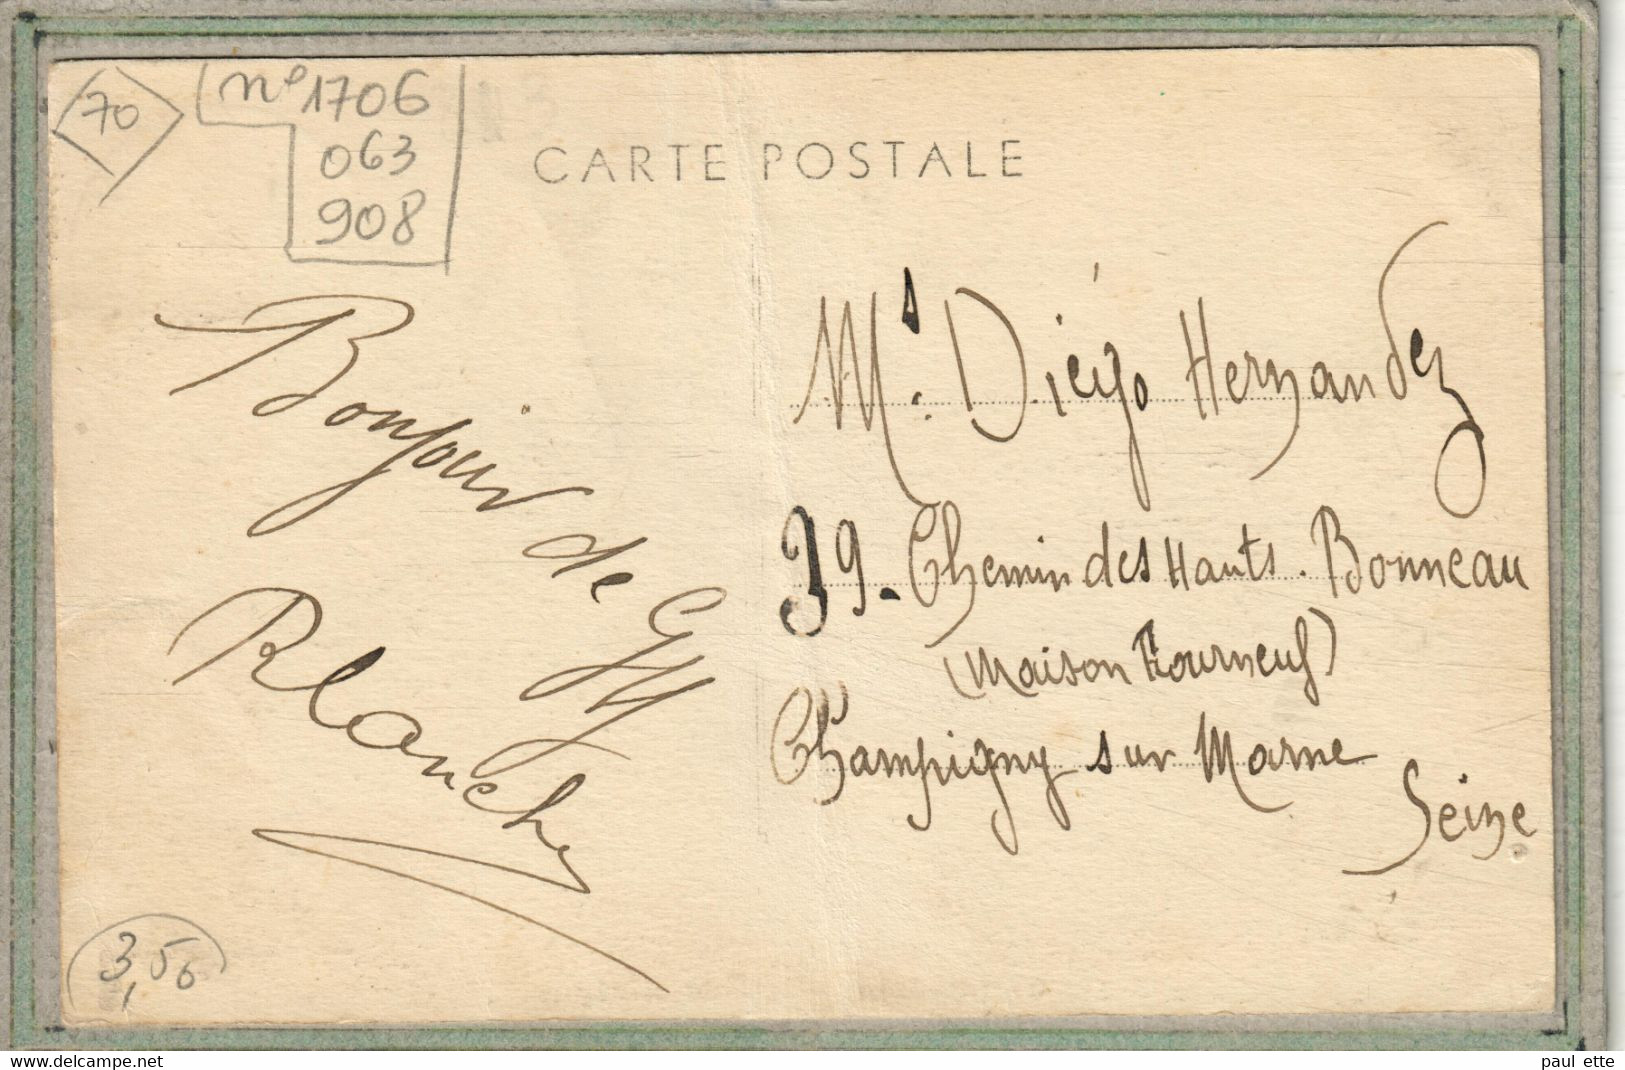 70
n° 1706
063
908
CARTE POSTALE
Bonjour de Gy
Blanche
Mr. Diégo Hernandez
39. Chemin des Hauts. Bonneau
(Maison Fourneuf)
Champigny sur Marne
Seine
3,50
www.delcampe.net
paul ette